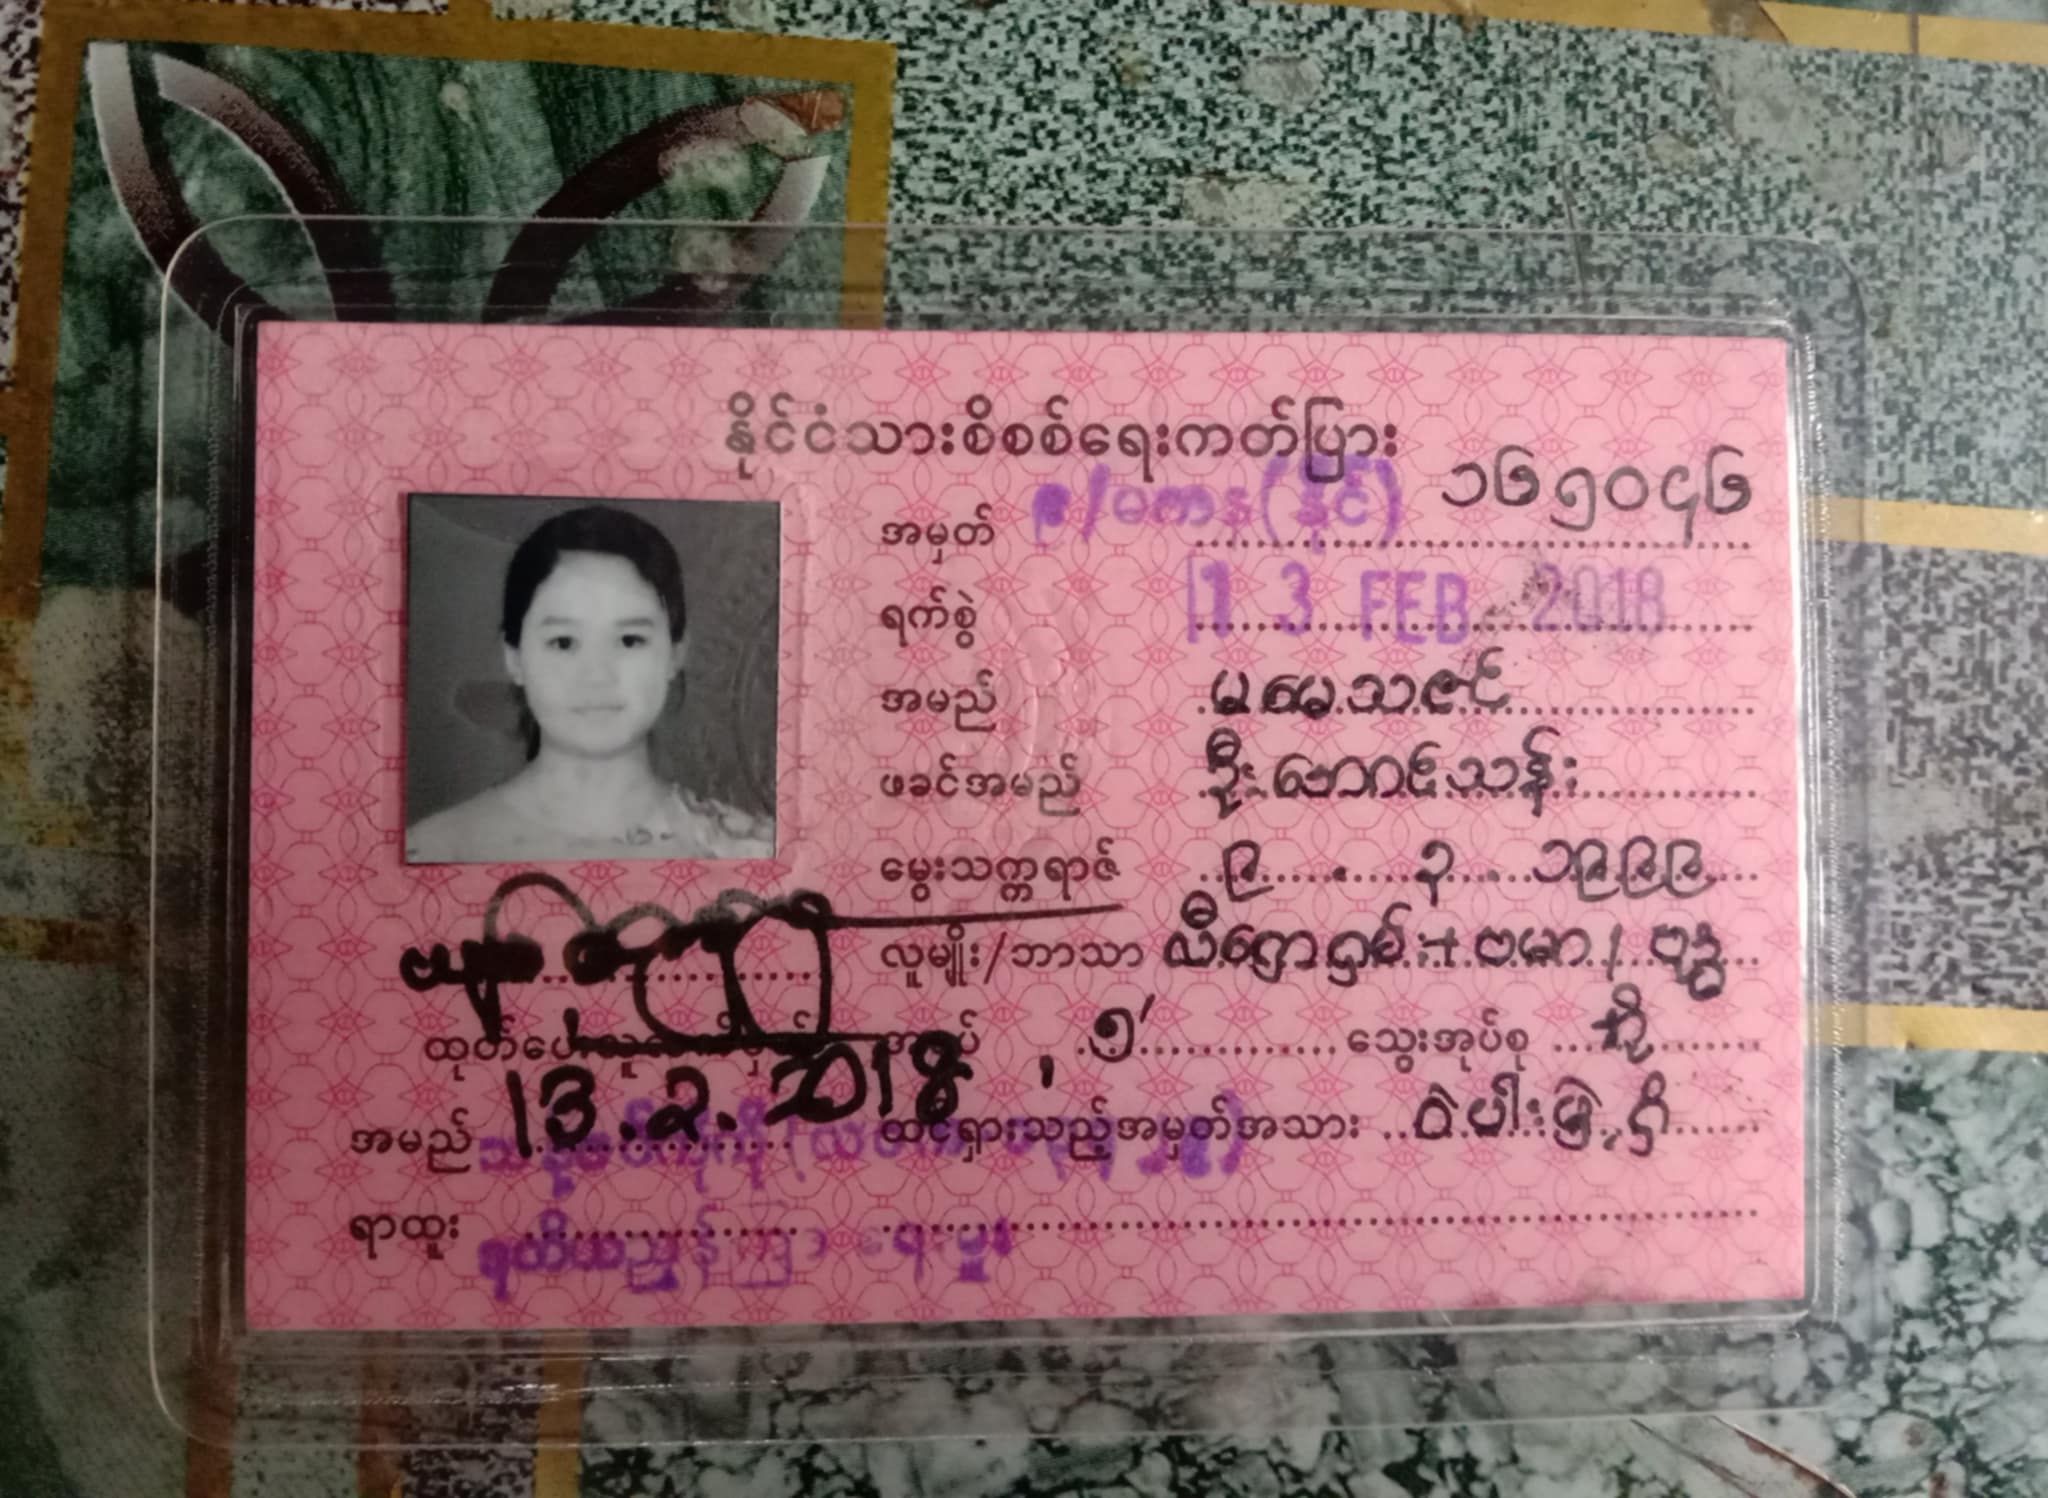 နိုင်ငံသားစိစစ်ရေးကတ်ပြား
အမှတ် ၉/မကန(နိုင်) ၁၆၅၀၄၆
ရက်စွဲ 13 FEB 2018
အမည် မမေသဇင်
ဖခင်အမည် ဦးအောင်သန်း
မွေးသက္ကရာဇ် ၉ . ၃ . ၁၉၉၉
လူမျိုး/ဘာသာ ဗမာ / ဗုဒ္ဓ
အရပ် ၅' သွေးအုပ်စု အို
ထုတ်ပေးသူလက်မှတ်
13.2.2018
ထင်ရှားသည့်အမှတ်အသား ဝဲပါးမှဲ့ရှိ
အမည်
ရာထူး ဒုတိယညွှန်ကြားရေးမှူး